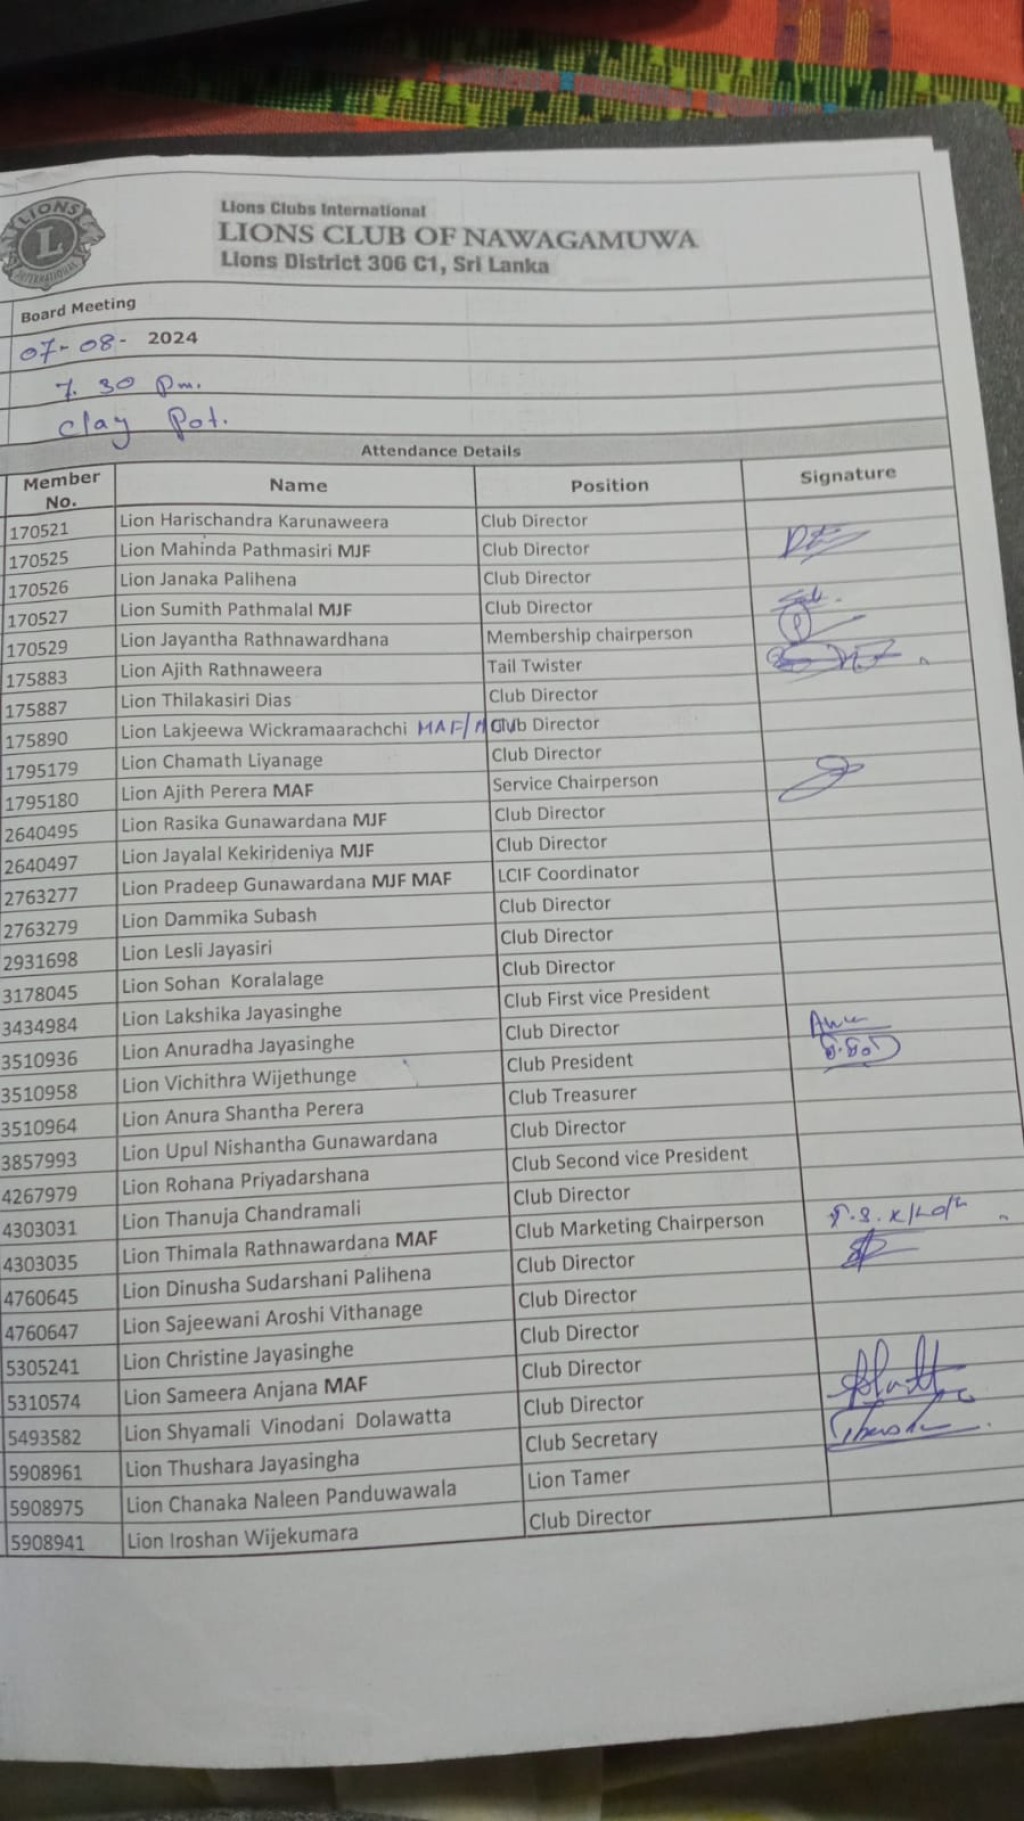 LIONS
L
INTERNATIONAL
Lions Clubs International
LIONS CLUB OF NAWAGAMUWA
Lions District 306 C1, Sri Lanka
Board Meeting
07-08- 2024
7.30 Pm.
Clay Pot.
Attendance Details
Member No. Name Position Signature
170521 Lion Harischandra Karunaweera Club Director
170525 Lion Mahinda Pathmasiri MJF Club Director
170526 Lion Janaka Palihena Club Director
170527 Lion Sumith Pathmalal MJF Club Director
170529 Lion Jayantha Rathnawardhana Membership chairperson
175883 Lion Ajith Rathnaweera Tail Twister
175887 Lion Thilakasiri Dias Club Director
175890 Lion Lakjeewa Wickramaarachchi MAF/ Club Director
1795179 Lion Chamath Liyanage Club Director
1795180 Lion Ajith Perera MAF Service Chairperson
2640495 Lion Rasika Gunawardana MJF Club Director
2640497 Lion Jayalal Kekirideniya MJF Club Director
2763277 Lion Pradeep Gunawardana MJF MAF LCIF Coordinator
2763279 Lion Dammika Subash Club Director
2931698 Lion Lesli Jayasiri Club Director
3178045 Lion Sohan Koralalage Club Director
3434984 Lion Lakshika Jayasinghe Club First vice President
3510936 Lion Anuradha Jayasinghe Club Director
3510958 Lion Vichithra Wijethunge Club President
3510964 Lion Anura Shantha Perera Club Treasurer
3857993 Lion Upul Nishantha Gunawardana Club Director
4267979 Lion Rohana Priyadarshana Club Second vice President
4303031 Lion Thanuja Chandramali Club Director
4303035 Lion Thimala Rathnawardana MAF Club Marketing Chairperson
4760645 Lion Dinusha Sudarshani Palihena Club Director
4760647 Lion Sajeewani Aroshi Vithanage Club Director
5305241 Lion Christine Jayasinghe Club Director
5310574 Lion Sameera Anjana MAF Club Director
5493582 Lion Shyamali Vinodani Dolawatta Club Director
5908961 Lion Thushara Jayasingha Club Secretary
5908975 Lion Chanaka Naleen Panduwawala Lion Tamer
5908941 Lion Iroshan Wijekumara Club Director